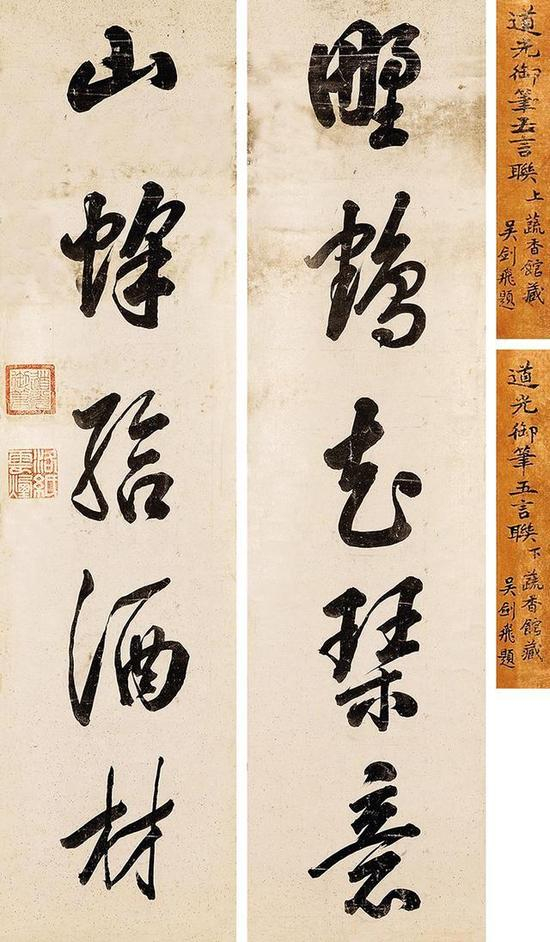 鶴琴意
山蜂給酒材
道光御筆五言聯上
蔬香館藏
吴剑飛題
道光御筆五言聯下
蔬香館藏
吴剑飛題